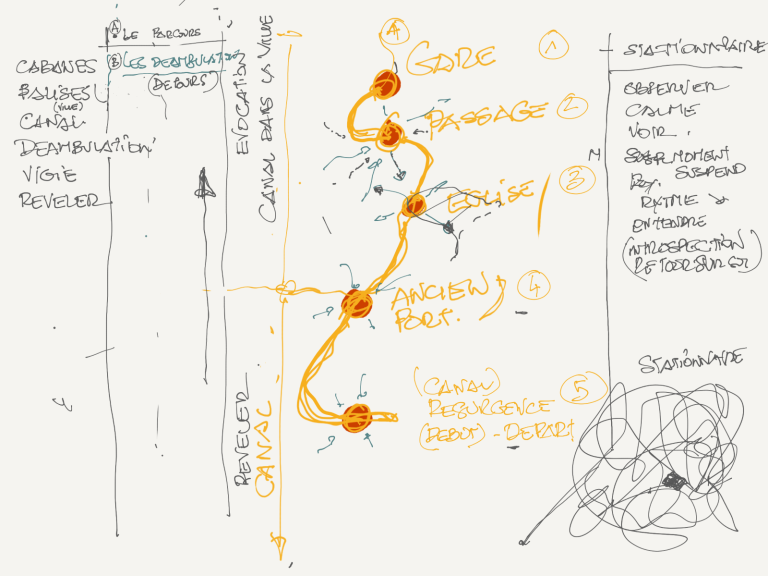 A LE PARCOURS
B LES DEAMBULATION
(DETOURS)
CABANES
PAUSES
(VILLE)
CANAL
DEAMBULATION
VIGIE
REVELER
EVOCATION
CANAL DANS LA VILLE
REVELER
CANAL
A
GARE 1
PASSAGE 2
EGLISE 3
ANCIEN 4
PORT.
(CANAL) 5
RESURGENCE
(DEBUT) - DEPART
STATIONNAIRE
OBSERVER
CALME
VOIR.
MOMENT
SUSPEND
RYTME
ENTENDRE
(INTROSPECTION
RETOUR SUR SOI)
STATIONNAIRE